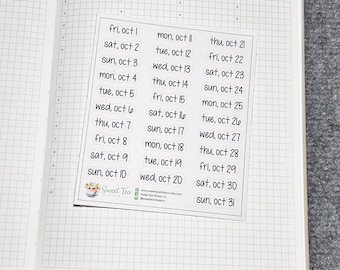 fri, oct 1
sat, oct 2
sun, oct 3
mon, oct 4
tue, oct 5
wed, oct 6
thu, oct 7
fri, oct 8
sat, oct 9
sun, oct 10
mon, oct 11
tue, oct 12
wed, oct 13
thu, oct 14
fri, oct 15
sat, oct 16
sun, oct 17
mon, oct 18
tue, oct 19
wed, oct 20
thu, oct 21
fri, oct 22
sat, oct 23
sun, oct 24
mon, oct 25
tue, oct 26
wed, oct 27
thu, oct 28
fri, oct 29
sat, oct 30
sun, oct 31
Sweet Tea